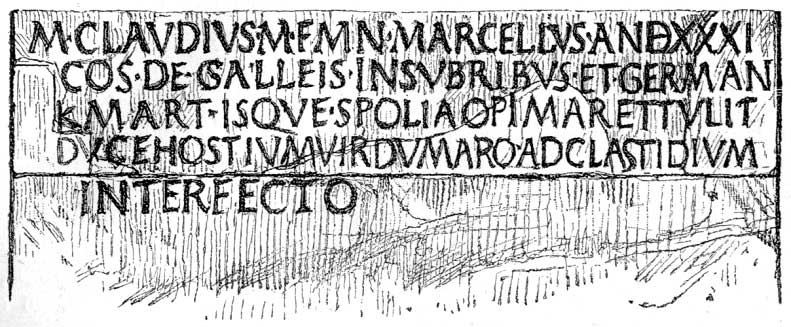 M·CLAVDIVS·M·F·M·N·MARCELLVS·AN·ĐXXXI
COS·DE·GALLEIS·INSVBRIBVS·ET·GERMAN
K·MART·ISQVE·SPOLIA OPIMA RETTVLIT
DVCE HOSTIVM VIRDVMARO·AD CLASTIDIVM
INTERFECTO